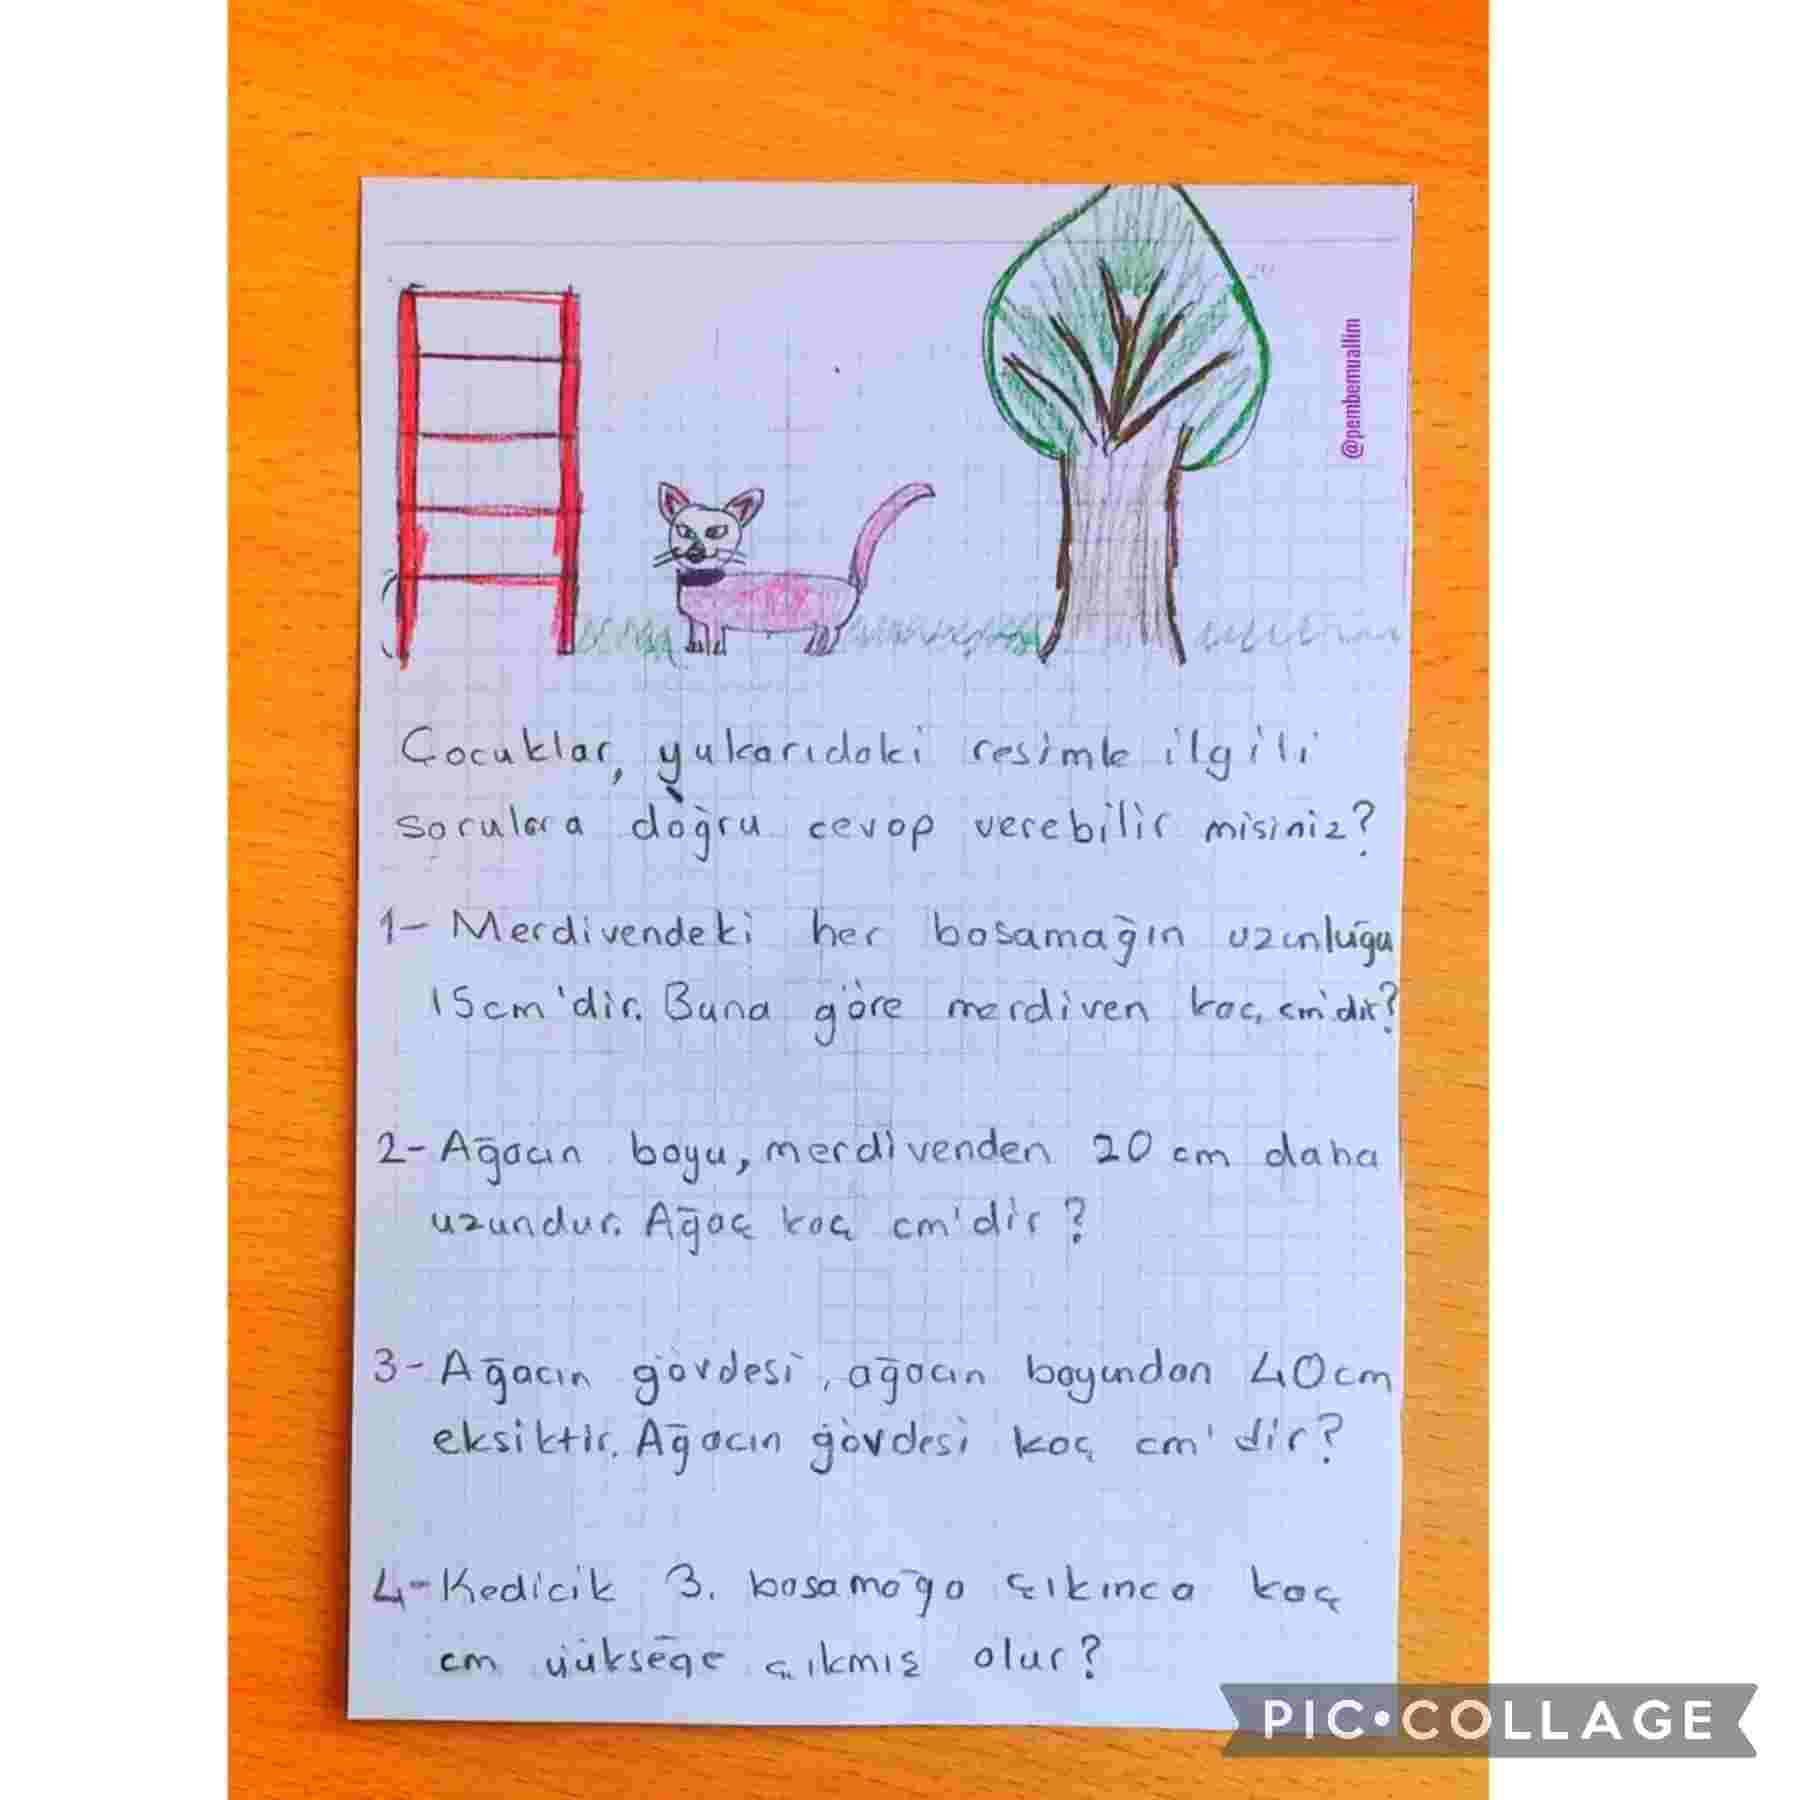 @pembemuallim
Çocuklar, yukarıdaki resimle ilgili
sorulara doğru cevap verebilir misiniz?
1- Merdivendeki her basamağın uzunluğu
15cm'dir. Buna göre merdiven kaç cm'dir?
2- Ağacın boyu, merdivenden 20 cm daha
uzundur. Ağaç kaç cm'dir?
3- Ağacın gövdesi, ağacın boyundan 40cm
eksiktir. Ağacın gövdesi kaç cm'dir?
4- Kedicik 3. basamağa çıkınca kaç
cm yükseğe çıkmış olur?
PIC•COLLAGE